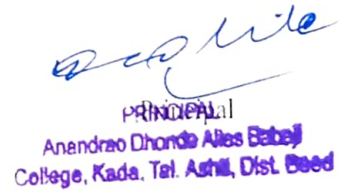 Principal
PRINCIPAL
Anandrao Dhonde Alias Babaji
College, Kada, Tal. Ashti, Dist. Beed